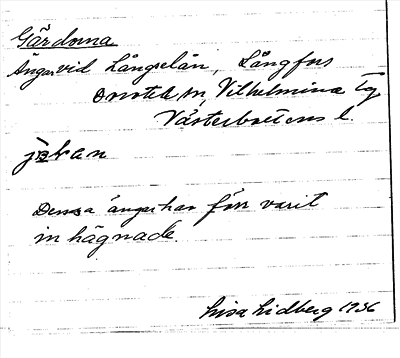 Gärdorna
Ängar vid Långselån, Långfors
Vilhelmina
Västerbottens l.
Dessa ängar har förr varit
in hägnade.
Lisa Lidberg 1936